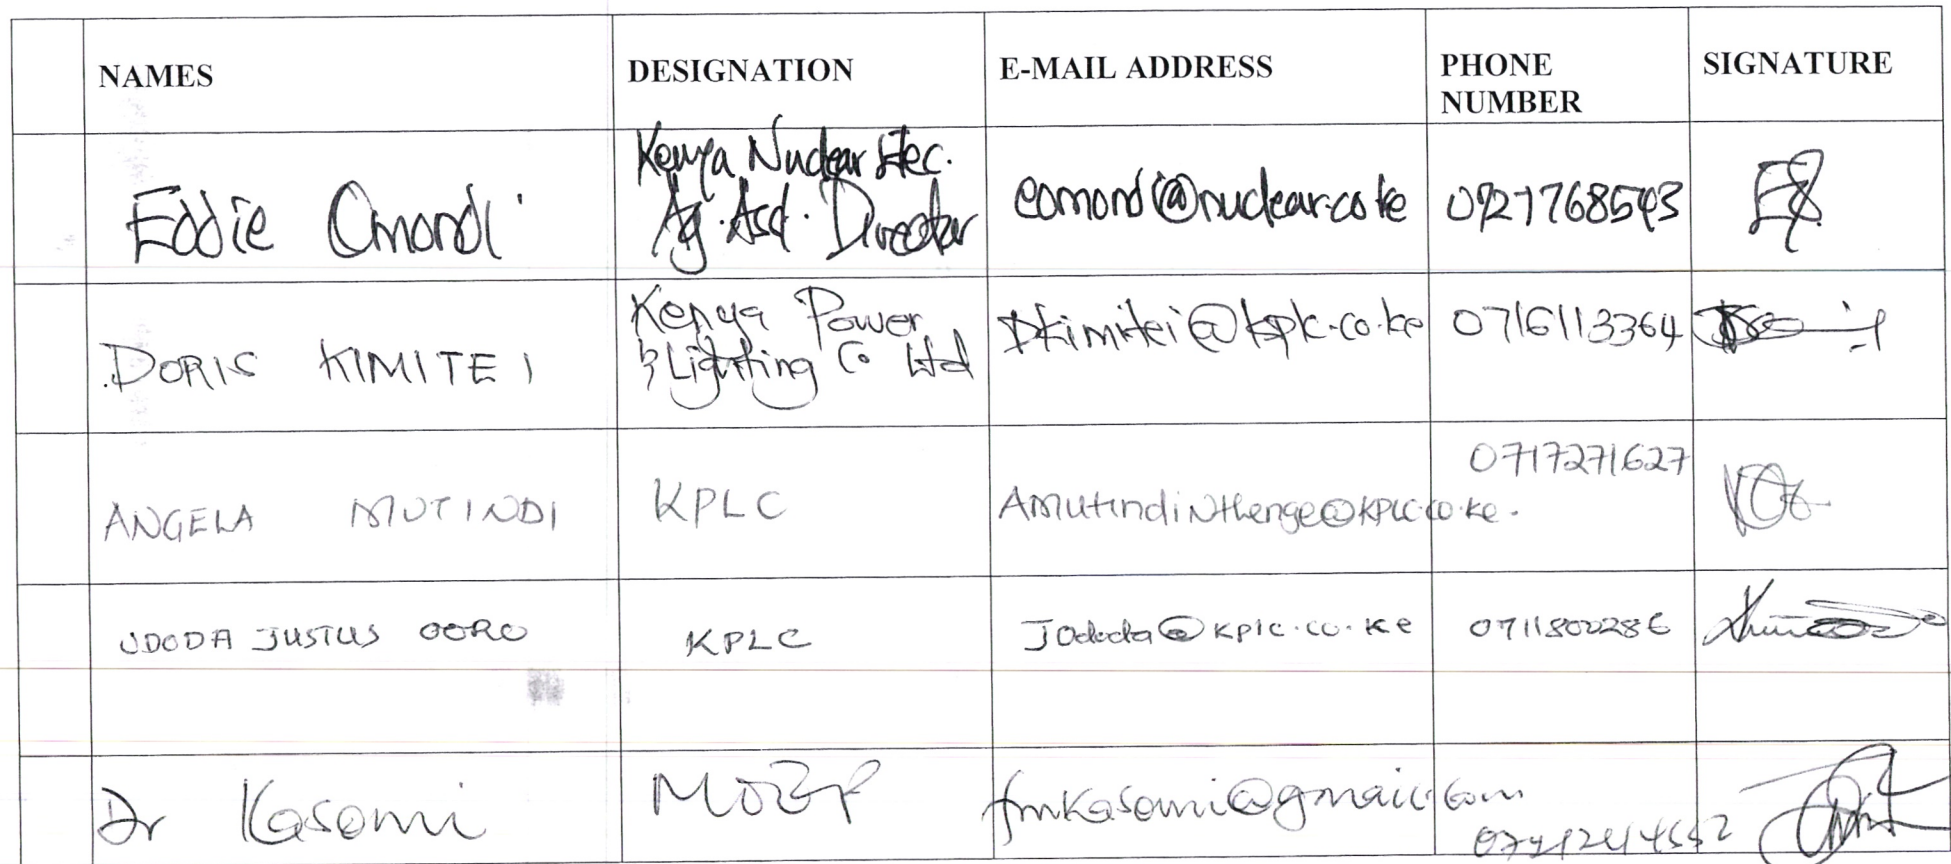 NAMES DESIGNATION E-MAIL ADDRESS PHONE NUMBER SIGNATURE
Eddie Omondi
Kenya Nuclear Elec.
Ag. Asd. Director
eomondi@nuclear.co.ke 0721768543
DORIS KIMITEI
Kenya Power
& Lighting Co Ltd
Dkimitei@kplc.co.ke 0716113364
ANGELA MUTINDI KPLC AmutindiNthenge@KPLC.co.ke. 0717271627
ODODA JUSTUS OORO KPLC JOdoda@kplc.co.ke 0711800286
Dr Kasomi MOEP fmkasomi@gmail.com